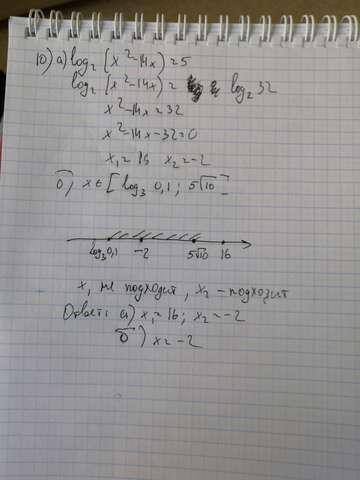 10) а) log₂ (x²-14x) = 5
log₂ (x²-14x) = log₂ 32
x²-14x=32
x²-14x-32=0
x₁= 16 x₂=-2
б) x ∈ [log₃ 0,1 ; 5√10]
log₃0,1 -2 5√10 16
x₁ не подходит, x₂ - подходит
Ответ: а) x₁=16; x₂=-2
б) x=-2